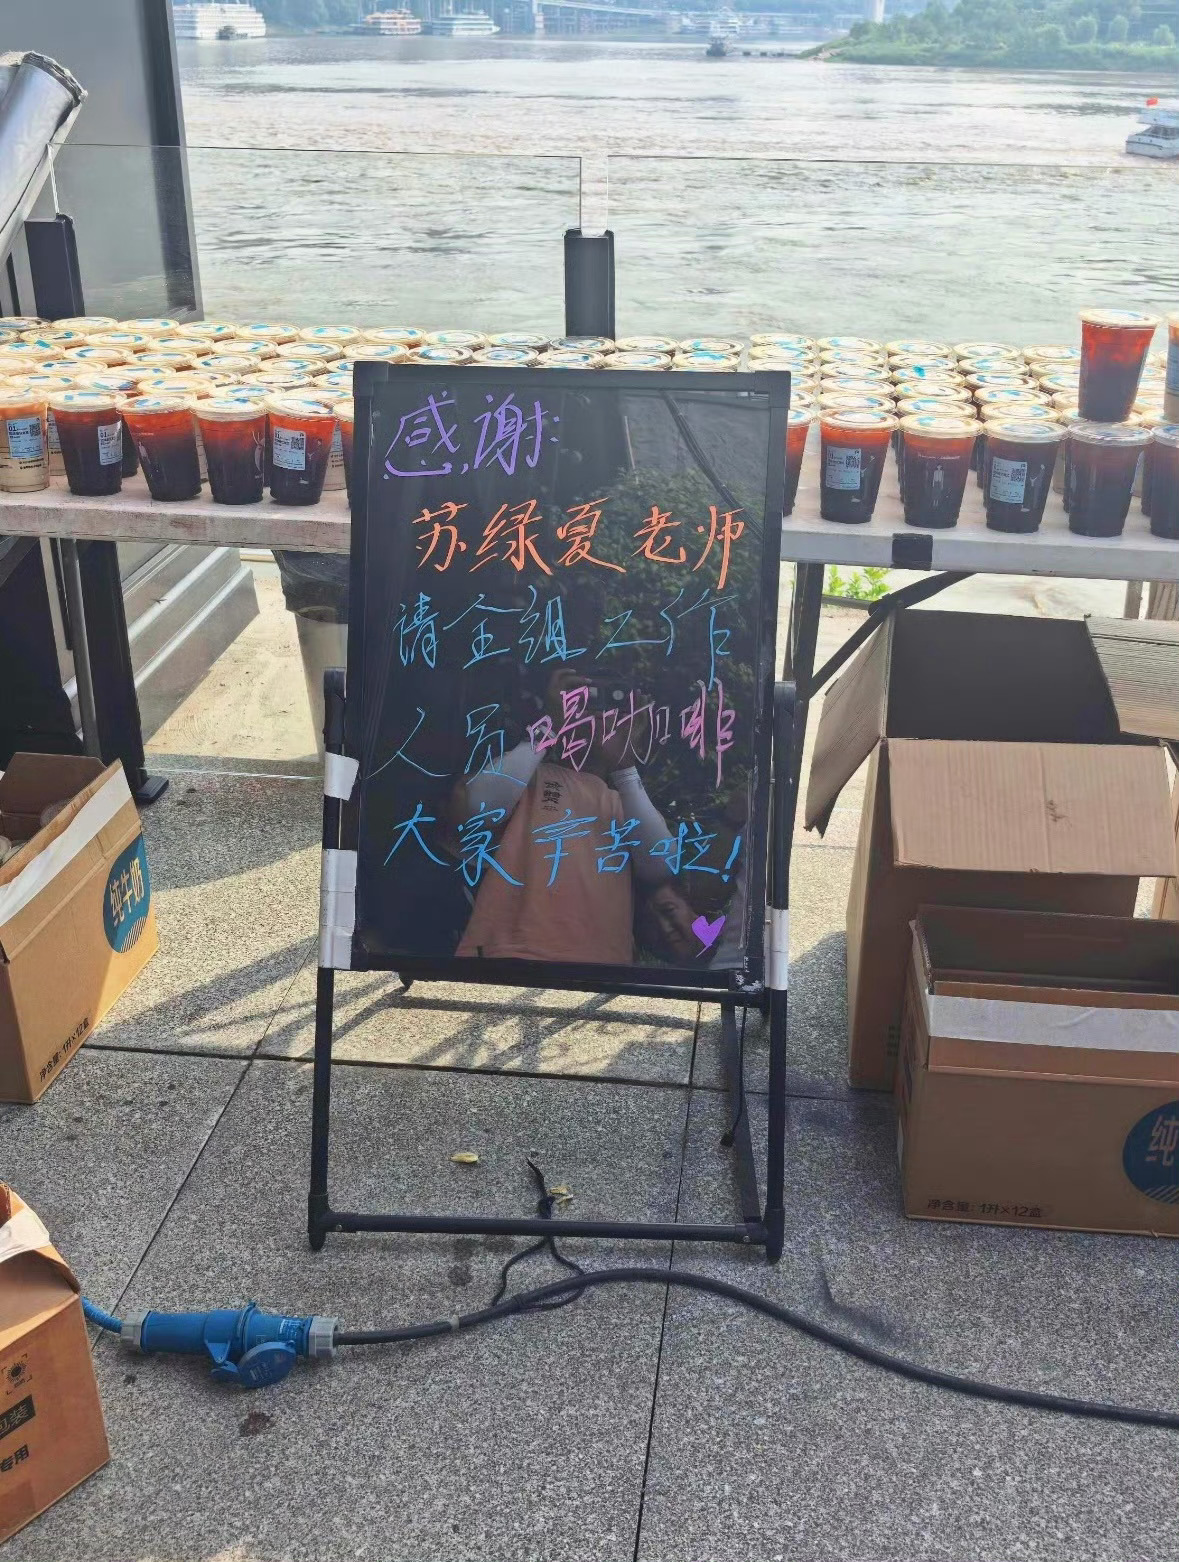 感谢:
苏绿夏老师
请全组工作
人员喝咖啡
大家辛苦啦!
纯牛奶
净含量:1升×12盒
纯
净含量:1升×12盒
专用